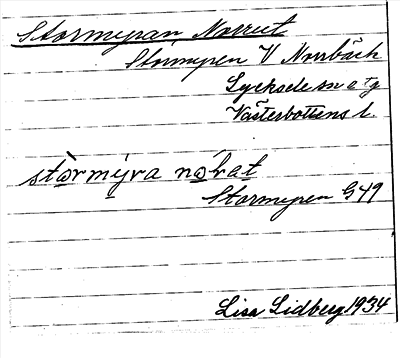 Stormyran Norrut
Stormyren V Norrbäck
Lycksele sn o tg
Västerbottens l.
stòrmýra nó̱rat
Stormyren G49
Lisa Lidberg 1934